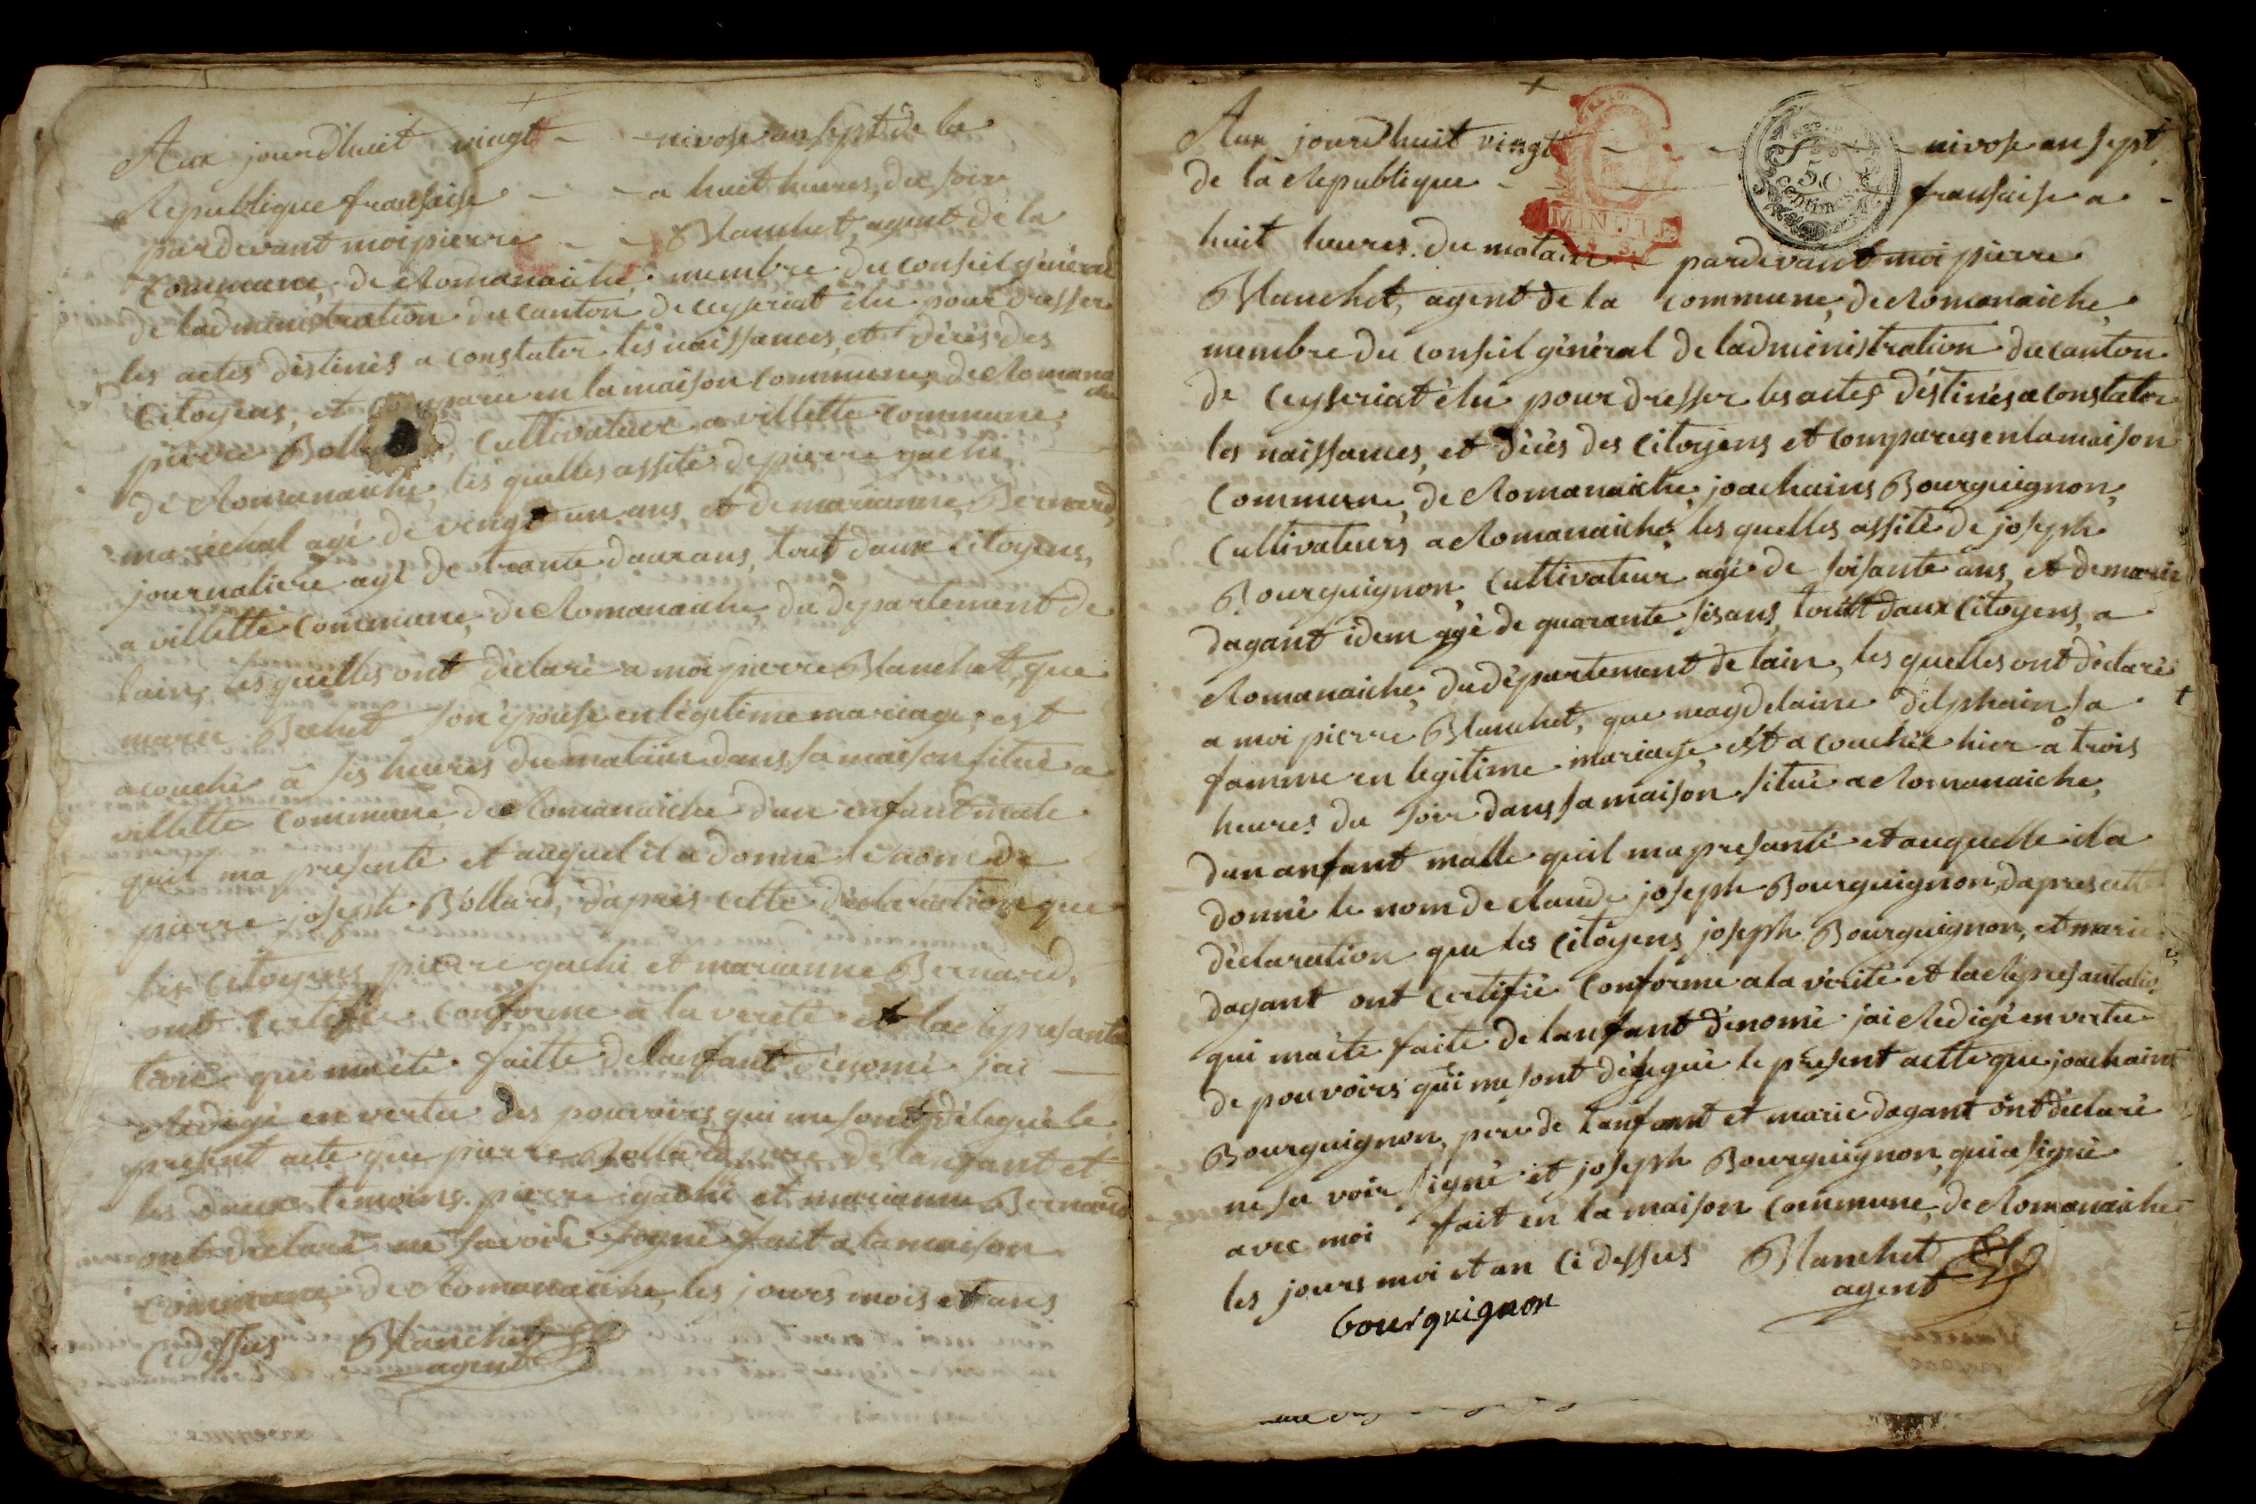 Aux jourdhuit vingt - nivose an sept de la
Republique fransaise - - a huit heures du soir
pardevant moi pierre - - Blanchet, agent de la
Commune, de Romanaiche, membre du conseil général
de ladministration du canton de ceyseriat élu pour dresser
les actes déstinés a constater les naissances, et décés des
Citoyens, et comparu en la maison commune, de Romanai
che
pierre Bollard, Cultivateur a villette commune,
de Romanaiche, les quelles assité de pierre gachi
maréchal agé de vingt un ans, et de marianne Bernard,
journaliere agé de trante daux ans, tout daux citoyens,
a villette Commune, de Romanaiche, du departement de
lain, les quelles ont déclaré a moi pierre Blanchet, que
marie son épouse en légitime mariage, est
acouché à sis heures du mataine dans sa maison situé a
villette Commune de Romanaiche dun enfant male
quil ma presenté et auquel il a donné le nom de
pierre joseph Bollard, daprés cette déclaration que
les Citoyens pierre gachi et marianne Bernard,
ont certifié conforme a la verité et la represanta
tion qui maété faitte de lanfant dénomé jai
Redigé en vertu des pouvoirs qui me sont délégué le
présent acte que pierre Bollard pere de lanfant et
les daux temoins pierre gachi et marianne Bernard
ont déclaré ne savoir signé fait a la maison
Commune, de Romanaiche, les jours mois et ans
Cidessus Blanchet
agent
Aux jourdhuit vingt - - nivose an sept
de la Republique - fransaise a -
MINUTE
50
Centimes
huit heures du mataine - pardevant moi pierre
Blanchet, agent de la commune, de Romanaiche,
membre du conseil général de ladministration du canton
de Ceyseriat élu pour dresser les actes déstinés a constater
les naissances, et décés des Citoyens et comparus en la maison
Commune, de Romanaiche, joachains Bourguignon,
Cultivateurs a Romanaiche, les quelles assité de joseph
Bourguignon, Cultivateur agé de soisante ans, et de marie
dagant idem agé de quarante sis ans, toutt daux Citoyens, a
Romanaiche, du département de lain, les quelles ont déclaré
a moi pierre Blanchet, que magdelaine delphain sa
famme en legitime mariage, est acouchée hier a trois
heures du soir dans sa maison situé a Romanaiche,
dun anfant malle quil ma presanté et auquelle il a
donné le nom de claude joseph Bourguignon, dapres cette
déclaration que les Citoyens joseph Bourguignon, et marie
dagant ont certifié conforme a la vérité et la represantatio
qui maété faite de lanfant dénomé jai Redigé en vertu
de pouvoirs qui me sont délegué le présent actte que joachains
Bourguignon, pere de lanfant et marie dagant ont déclaré
ne sa voir signé et joseph Bourguignon, qui a signé
avec moi fait en la maison commune, de Romanaiche
les jours moi et an Ci dessus Blanchet
agent
bourguignon